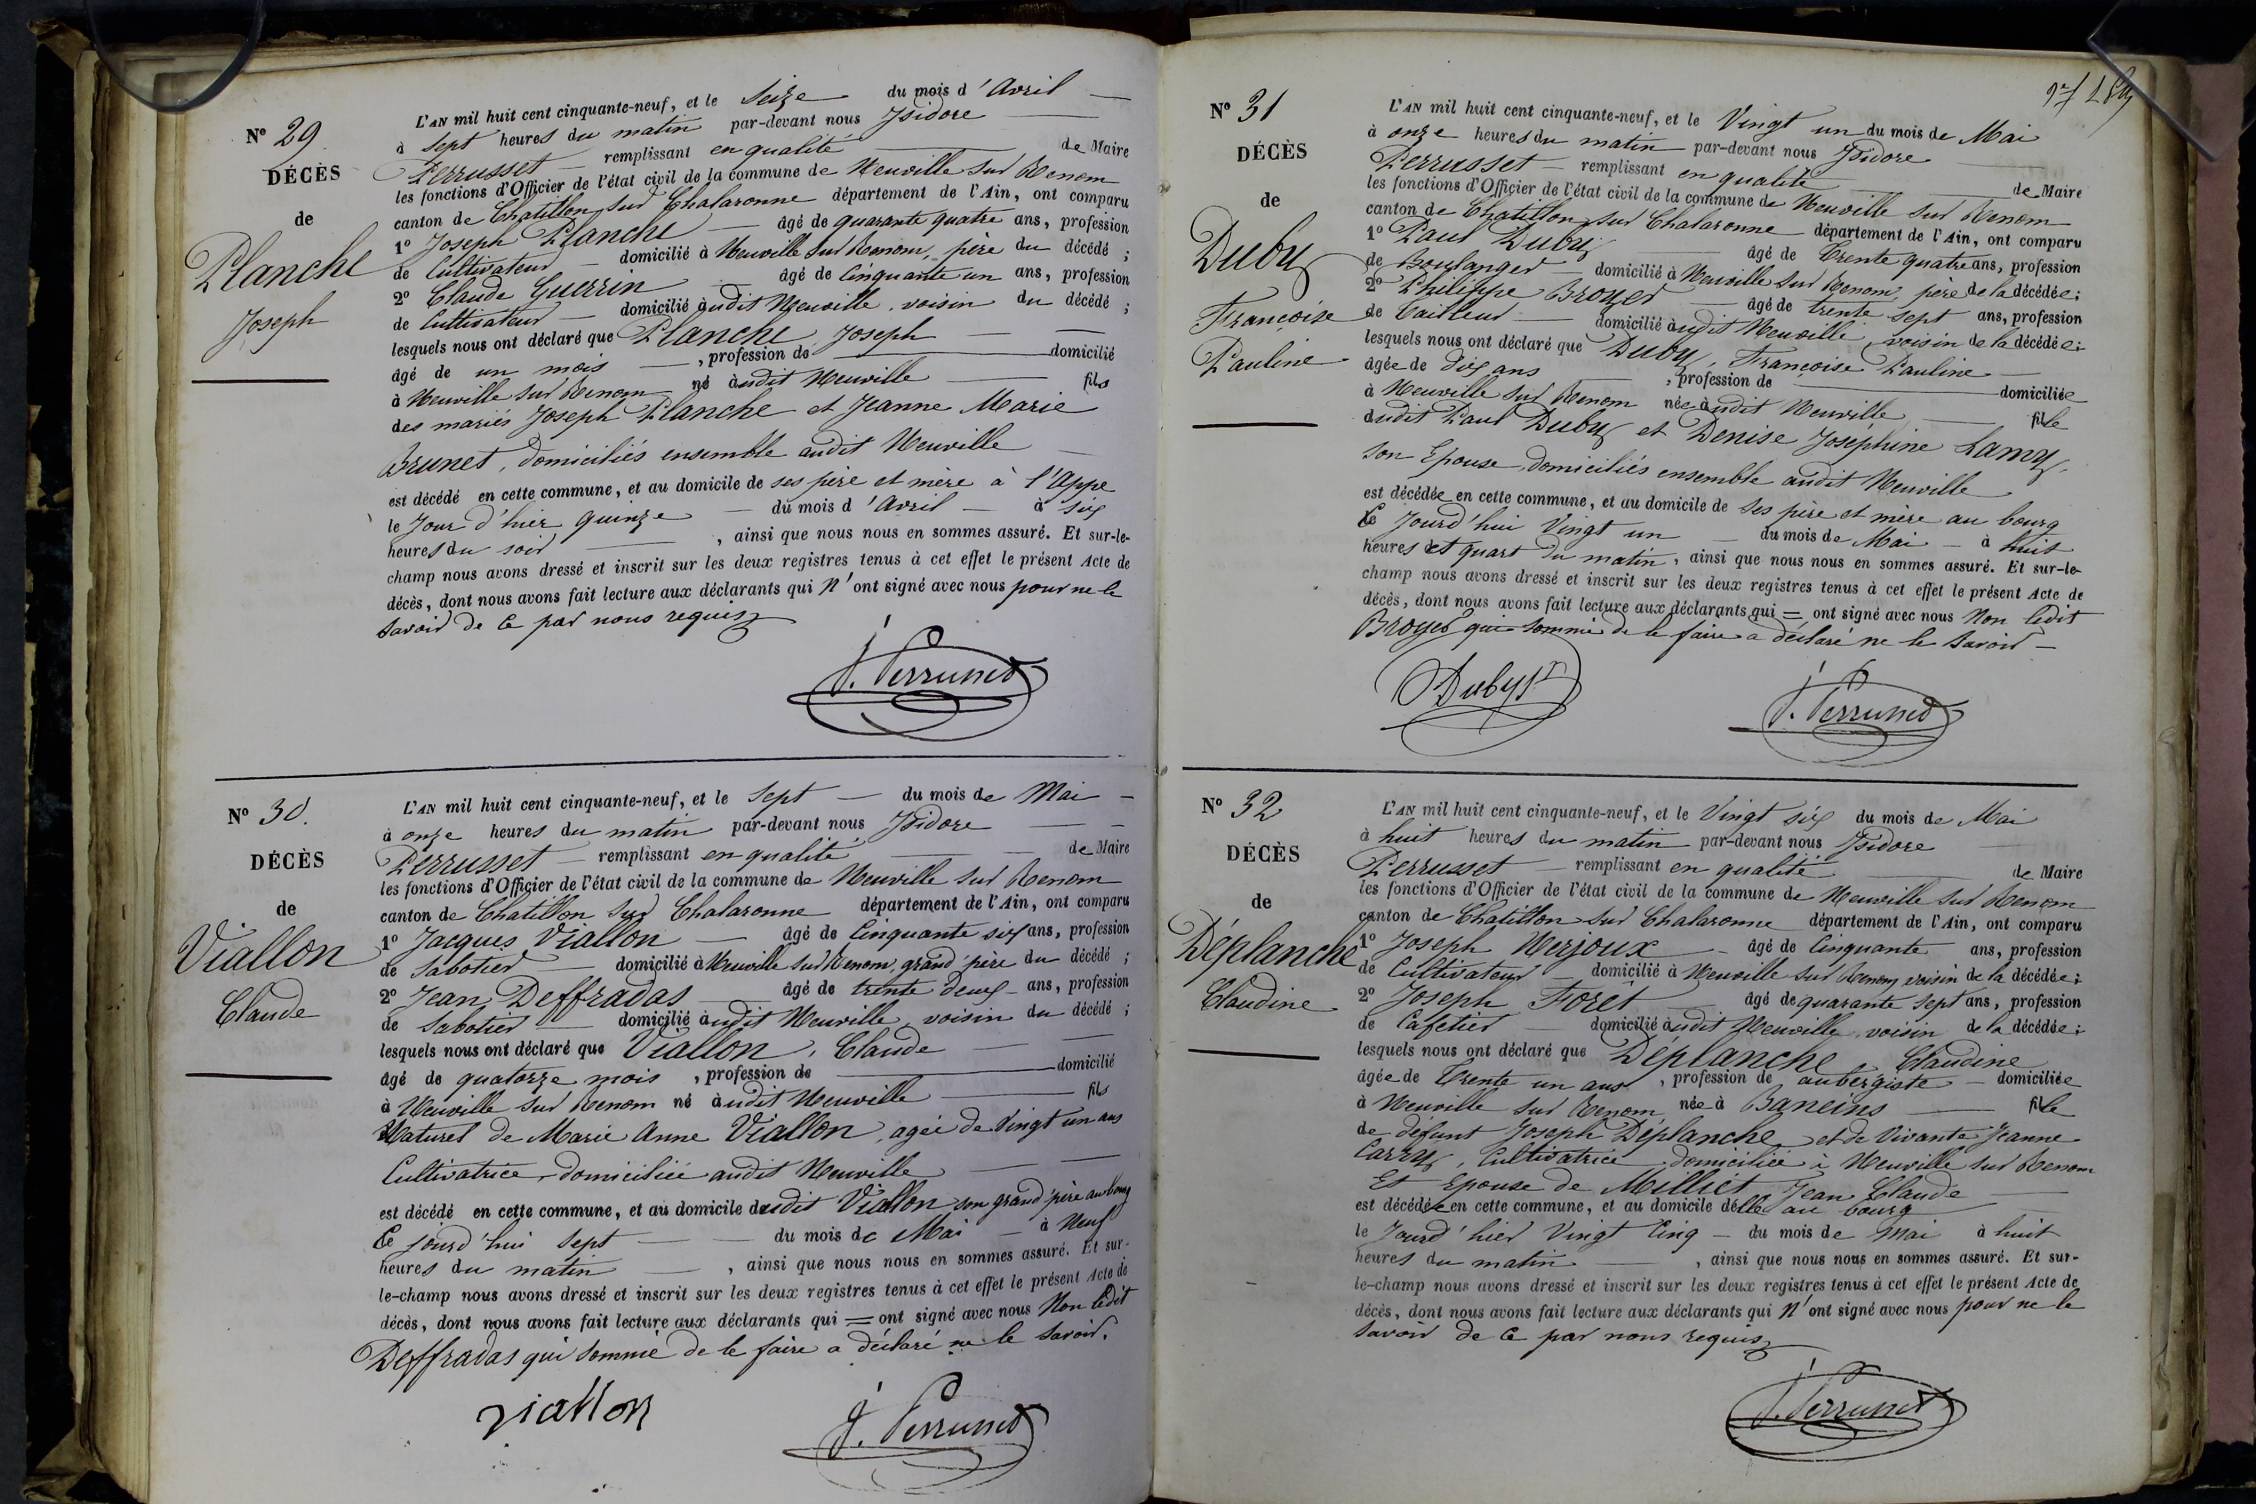 N° 29.
DÉCÈS
de
Planche
Joseph
L'AN mil huit cent cinquante-neuf, et le Seize du mois d'Avril
à sept heures du matin par-devant nous Isidore
Perrusset remplissant en qualité de Maire
les fonctions d'Officier de l'état civil de la commune de Neuville sur Renom
canton de Chatillon sur Chalaronne département de l'Ain, ont comparu
1° Joseph Planche âgé de quarante quatre ans, profession
de Cultivateur domicilié à Neuville sur Renom, père du décédé ;
2° Claude Guerrin âgé de Cinquante un ans, profession
de Cultivateur domicilié audit Neuville, voisin du décédé ;
lesquels nous ont déclaré que Planche, Joseph
âgé de un mois , profession de domicilié
à Neuville sur Renom né audit Neuville fils
des mariés Joseph Planche et Jeanne Marie
Brunet, domiciliés ensemble audit Neuville
est décédé en cette commune, et au domicile de ses père et mère à l'Appe
le Jour d'hier quinze du mois d'Avril à six
heures du soir , ainsi que nous nous en sommes assuré. Et sur-le-
champ nous avons dressé et inscrit sur les deux registres tenus à cet effet le présent Acte de
décès, dont nous avons fait lecture aux déclarants qui N'ont signé avec nous pour ne le
savoir de ce par nous requis
J. Perrusset
N° 30.
DÉCÈS
de
Viallon
Claude
L'AN mil huit cent cinquante-neuf, et le Sept du mois de Mai
à onze heures du matin par-devant nous Isidore
Perrusset remplissant en qualité de Maire
les fonctions d'Officier de l'état civil de la commune de Neuville sur Renom
canton de Chatillon sur Chalaronne département de l'Ain, ont comparu
1° Jacques Viallon âgé de Cinquante six ans, profession
de Sabotier domicilié à Neuville sur Renom, grand'père du décédé ;
2° Jean Deffradas âgé de trente deux ans, profession
de Sabotier domicilié audit Neuville, voisin du décédé ;
lesquels nous ont déclaré que Viallon, Claude
âgé de quatorze mois , profession de domicilié
à Neuville sur Renom né audit Neuville fils
Naturel de Marie Anne Viallon, agée de Vingt un ans
Cultivatrice, domiciliée audit Neuville
est décédé en cette commune, et au domicile dudit Viallon son grand'père au bourg
Ce jourd'hui sept du mois de Mai à Neuf
heures du matin , ainsi que nous nous en sommes assuré. Et sur-
le-champ nous avons dressé et inscrit sur les deux registres tenus à cet effet le présent Acte de
décès, dont nous avons fait lecture aux déclarants qui = ont signé avec nous Non ledit
Deffradas qui sommé de le faire a déclaré ne le savoir.
viallon
J. Perrusset
N° 31
DÉCÈS
de
Duby
Françoise
Pauline
L'AN mil huit cent cinquante-neuf, et le Vingt un du mois de Mai
à onze heures du matin par-devant nous Isidore
Perrusset remplissant en qualité de Maire
les fonctions d'Officier de l'état civil de la commune de Neuville sur Renom
canton de Chatillon sur Chalaronne département de l'Ain, ont comparu
1° Paul Duby âgé de Trente quatre ans, profession
de Boulanger domicilié à Neuville sur Renom, père de la décédée ;
2° Philippe Broyer âgé de trente sept ans, profession
de Tailleur domicilié audit Neuville, voisin de la décédée ;
lesquels nous ont déclaré que Duby, Françoise Pauline
âgée de dix ans , profession de domiciliée
à Neuville sur Renom née audit Neuville fille
dudit Paul Duby et Denise Joséphine Lamy,
son Epouse, domiciliés ensemble audit Neuville
est décédée en cette commune, et au domicile de ses père et mère au bourg
Ce Jourd'hui Vingt un du mois de Mai à huit
heures et quart du matin, ainsi que nous nous en sommes assuré. Et sur-le-
champ nous avons dressé et inscrit sur les deux registres tenus à cet effet le présent Acte de
décès, dont nous avons fait lecture aux déclarants qui = ont signé avec nous Non ledit
Broyer qui sommé de le faire a déclaré ne le savoir
Duby
J. Perrusset
N° 32
DÉCÈS
de
Déplanche
Claudine
L'AN mil huit cent cinquante-neuf, et le Vingt six du mois de Mai
à huit heures du matin par-devant nous Isidore
Perrusset remplissant en qualité de Maire
les fonctions d'Officier de l'état civil de la commune de Neuville sur Renom
canton de Chatillon sur Chalaronne département de l'Ain, ont comparu
1° Joseph Nerjoux âgé de Cinquante ans, profession
de Cultivateur domicilié à Neuville sur Renom, voisin de la décédée ;
2° Joseph Forêt âgé de quarante sept ans, profession
de Cafetier domicilié audit Neuville, voisin de la décédée ;
lesquels nous ont déclaré que Déplanche, Claudine
âgée de Trente un ans , profession de aubergiste domiciliée
à Neuville sur Renom née à Baneins fille
de défunt Joseph Déplanche, et de Vivante Jeanne
Carry, Cultivatrice domiciliée à Neuville sur Renom
Et Epouse de Milliet Jean Claude
est décédée en cette commune, et au domicile d'elle au bourg
le Jourd'hier Vingt Cinq du mois de Mai à huit
heures du matin , ainsi que nous nous en sommes assuré. Et sur-
le-champ nous avons dressé et inscrit sur les deux registres tenus à cet effet le présent Acte de
décès, dont nous avons fait lecture aux déclarants qui N'ont signé avec nous pour ne le
savoir de ce par nous requis
J. Perrusset